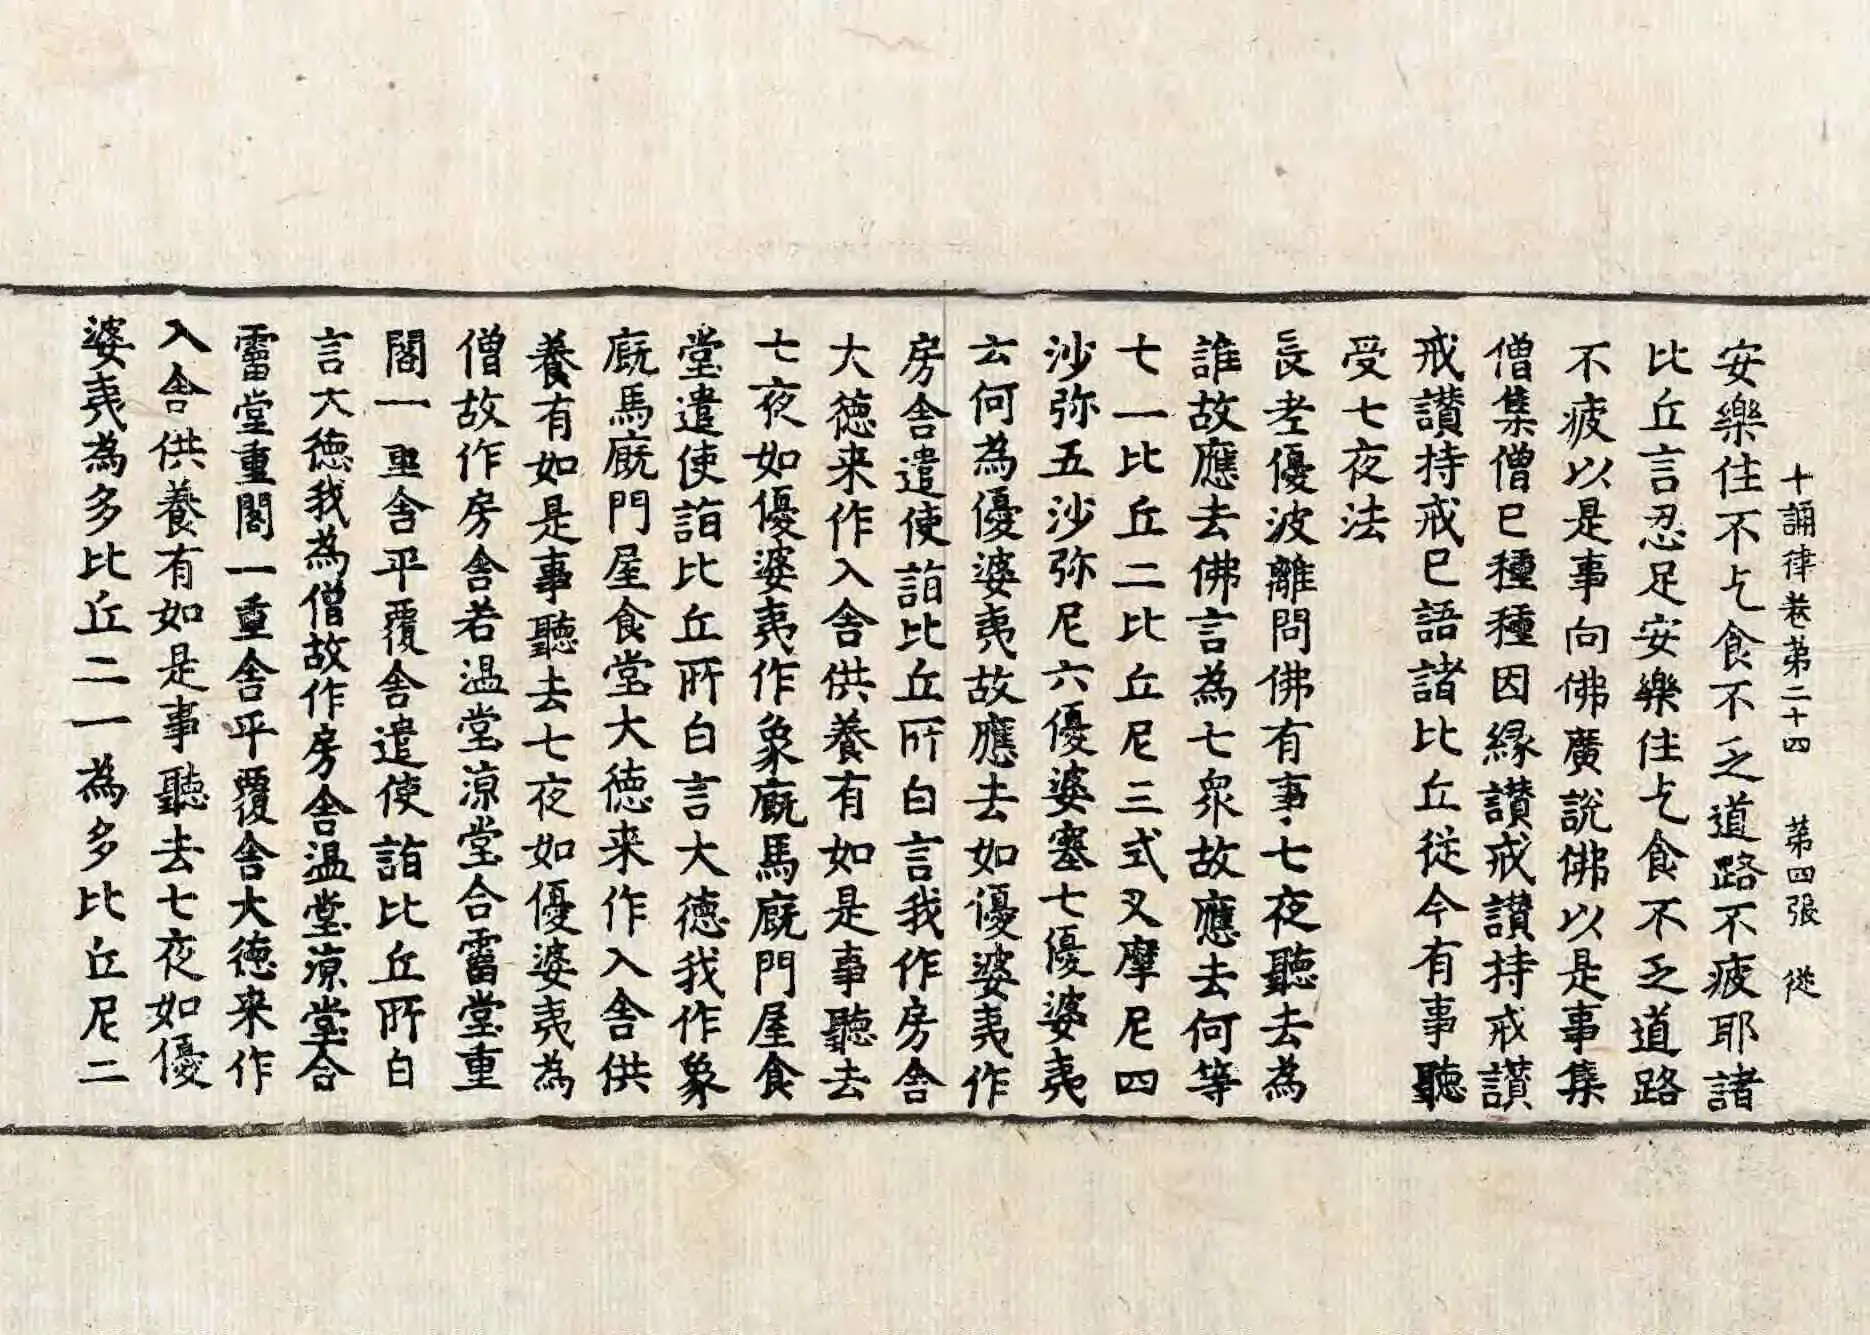 十誦律卷第二十四 第四張 従
安樂住不乞食不乏道路不疲耶諸
比丘言忍足安樂住乞食不乏道路
不疲以是事向佛廣說佛以是事集
僧集僧已種種因緣讃戒讃持戒讃
戒讃持戒已語諸比丘従今有事聽
受七夜法
長老優波離問佛有事七夜聽去為
誰故應去佛言為七衆故應去何等
七一比丘二比丘尼三式叉摩尼四
沙弥五沙弥尼六優婆塞七優婆夷
云何為優婆夷故應去如優婆夷作
房舍遣使詣比丘所白言我作房舍
大德来作入舍供養有如是事聽去
七夜如優婆夷作象厩馬厩門屋食
堂遣使詣比丘所白言大德我作象
厩馬厩門屋食堂大德来作入舍供
養有如是事聽去七夜如優婆夷為
僧故作房舍若温堂涼堂合霤堂重
閣一重舍平覆舍遣使詣比丘所白
言大德我為僧故作房舍温堂涼堂合
霤堂重閣一重舍平覆舍大德来作
入舍供養有如是事聽去七夜如優
婆夷為多比丘二一為多比丘尼二